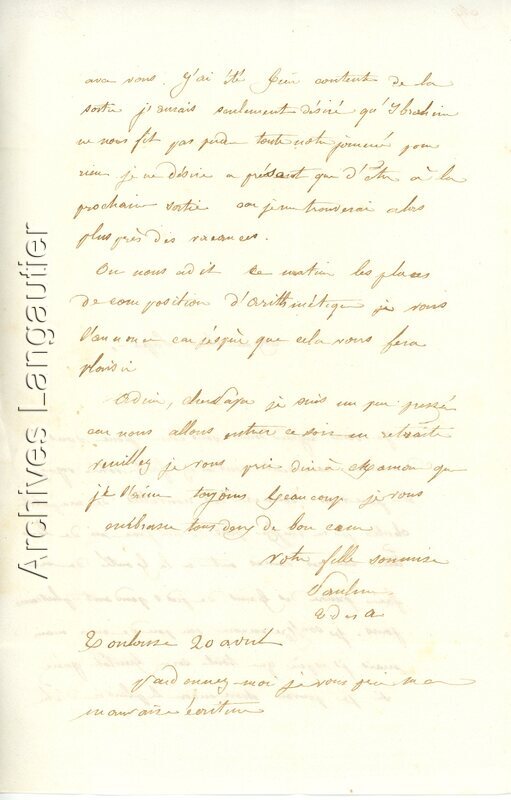 avec vous. J'ai été bien contente de la
sortie j'aurais seulement désiré qu'Ibrahim
ne nous fit pas perdre toute notre journée pour
rien je ne désire a présent que d'etre à la
prochaine sortie car je me trouverai alors
plus près des vacances.
On nous a dit ce matin les places
de composition d'arithmétique je vous
l'annonce car j'espère que cela vous fera
plaisir
Adieu, cher Papa je suis un peu pressée
car nous allons entrer ce soir en retraite
veuillez je vous prie dire à Maman que
je l'aime toujours beaucoup je vous
embrasse tous deux de bon cœur
Votre fille soumise
Pauline
Toulouse 20 avril
Pardonnez-moi je vous prie ma
mauvaise écriture
Archives Langautier